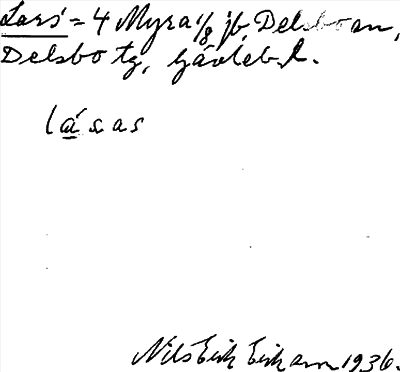 Lars = 4 Myra 1/8 jb Delsbo an,
Delsbo tg, Gävleb. l.
lásas
Nils Erik Eriksson 1936.